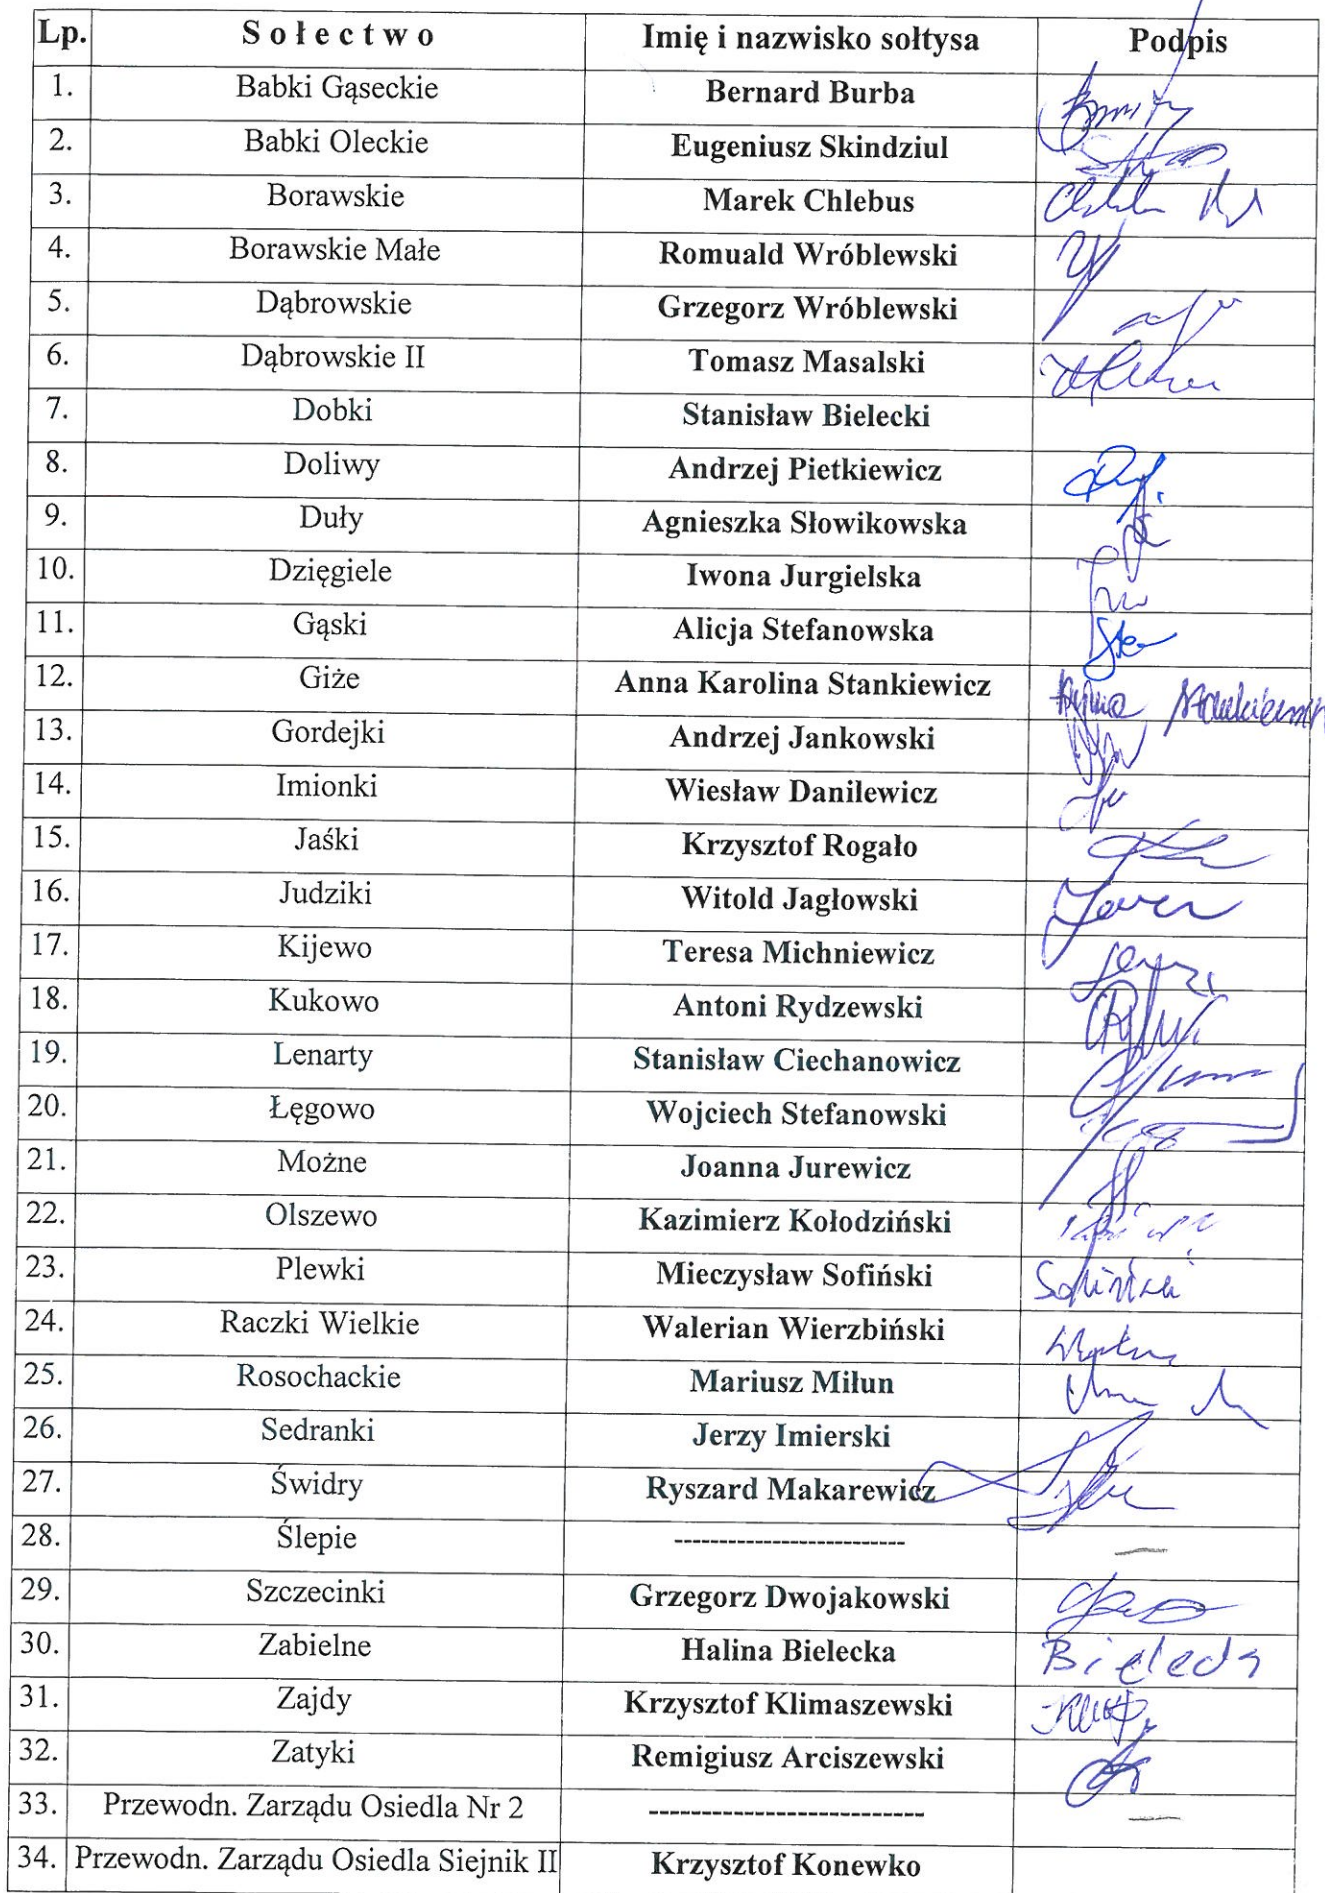 Lp. Sołectwo Imię i nazwisko sołtysa Podpis
1. Babki Gąseckie Bernard Burba
2. Babki Oleckie Eugeniusz Skindziul
3. Borawskie Marek Chlebus
4. Borawskie Małe Romuald Wróblewski
5. Dąbrowskie Grzegorz Wróblewski
6. Dąbrowskie II Tomasz Masalski
7. Dobki Stanisław Bielecki
8. Doliwy Andrzej Pietkiewicz
9. Duły Agnieszka Słowikowska
10. Dzięgiele Iwona Jurgielska
11. Gąski Alicja Stefanowska
12. Giże Anna Karolina Stankiewicz
13. Gordejki Andrzej Jankowski
14. Imionki Wiesław Danilewicz
15. Jaśki Krzysztof Rogało
16. Judziki Witold Jagłowski
17. Kijewo Teresa Michniewicz
18. Kukowo Antoni Rydzewski
19. Lenarty Stanisław Ciechanowicz
20. Łęgowo Wojciech Stefanowski
21. Możne Joanna Jurewicz
22. Olszewo Kazimierz Kołodziński
23. Plewki Mieczysław Sofiński
24. Raczki Wielkie Walerian Wierzbiński
25. Rosochackie Mariusz Miłun
26. Sedranki Jerzy Imierski
27. Świdry Ryszard Makarewicz
28. Ślepie -------------------------- —
29. Szczecinki Grzegorz Dwojakowski
30. Zabielne Halina Bielecka
31. Zajdy Krzysztof Klimaszewski
32. Zatyki Remigiusz Arciszewski
33. Przewodn. Zarządu Osiedla Nr 2 -------------------------- —
34. Przewodn. Zarządu Osiedla Siejnik II Krzysztof Konewko